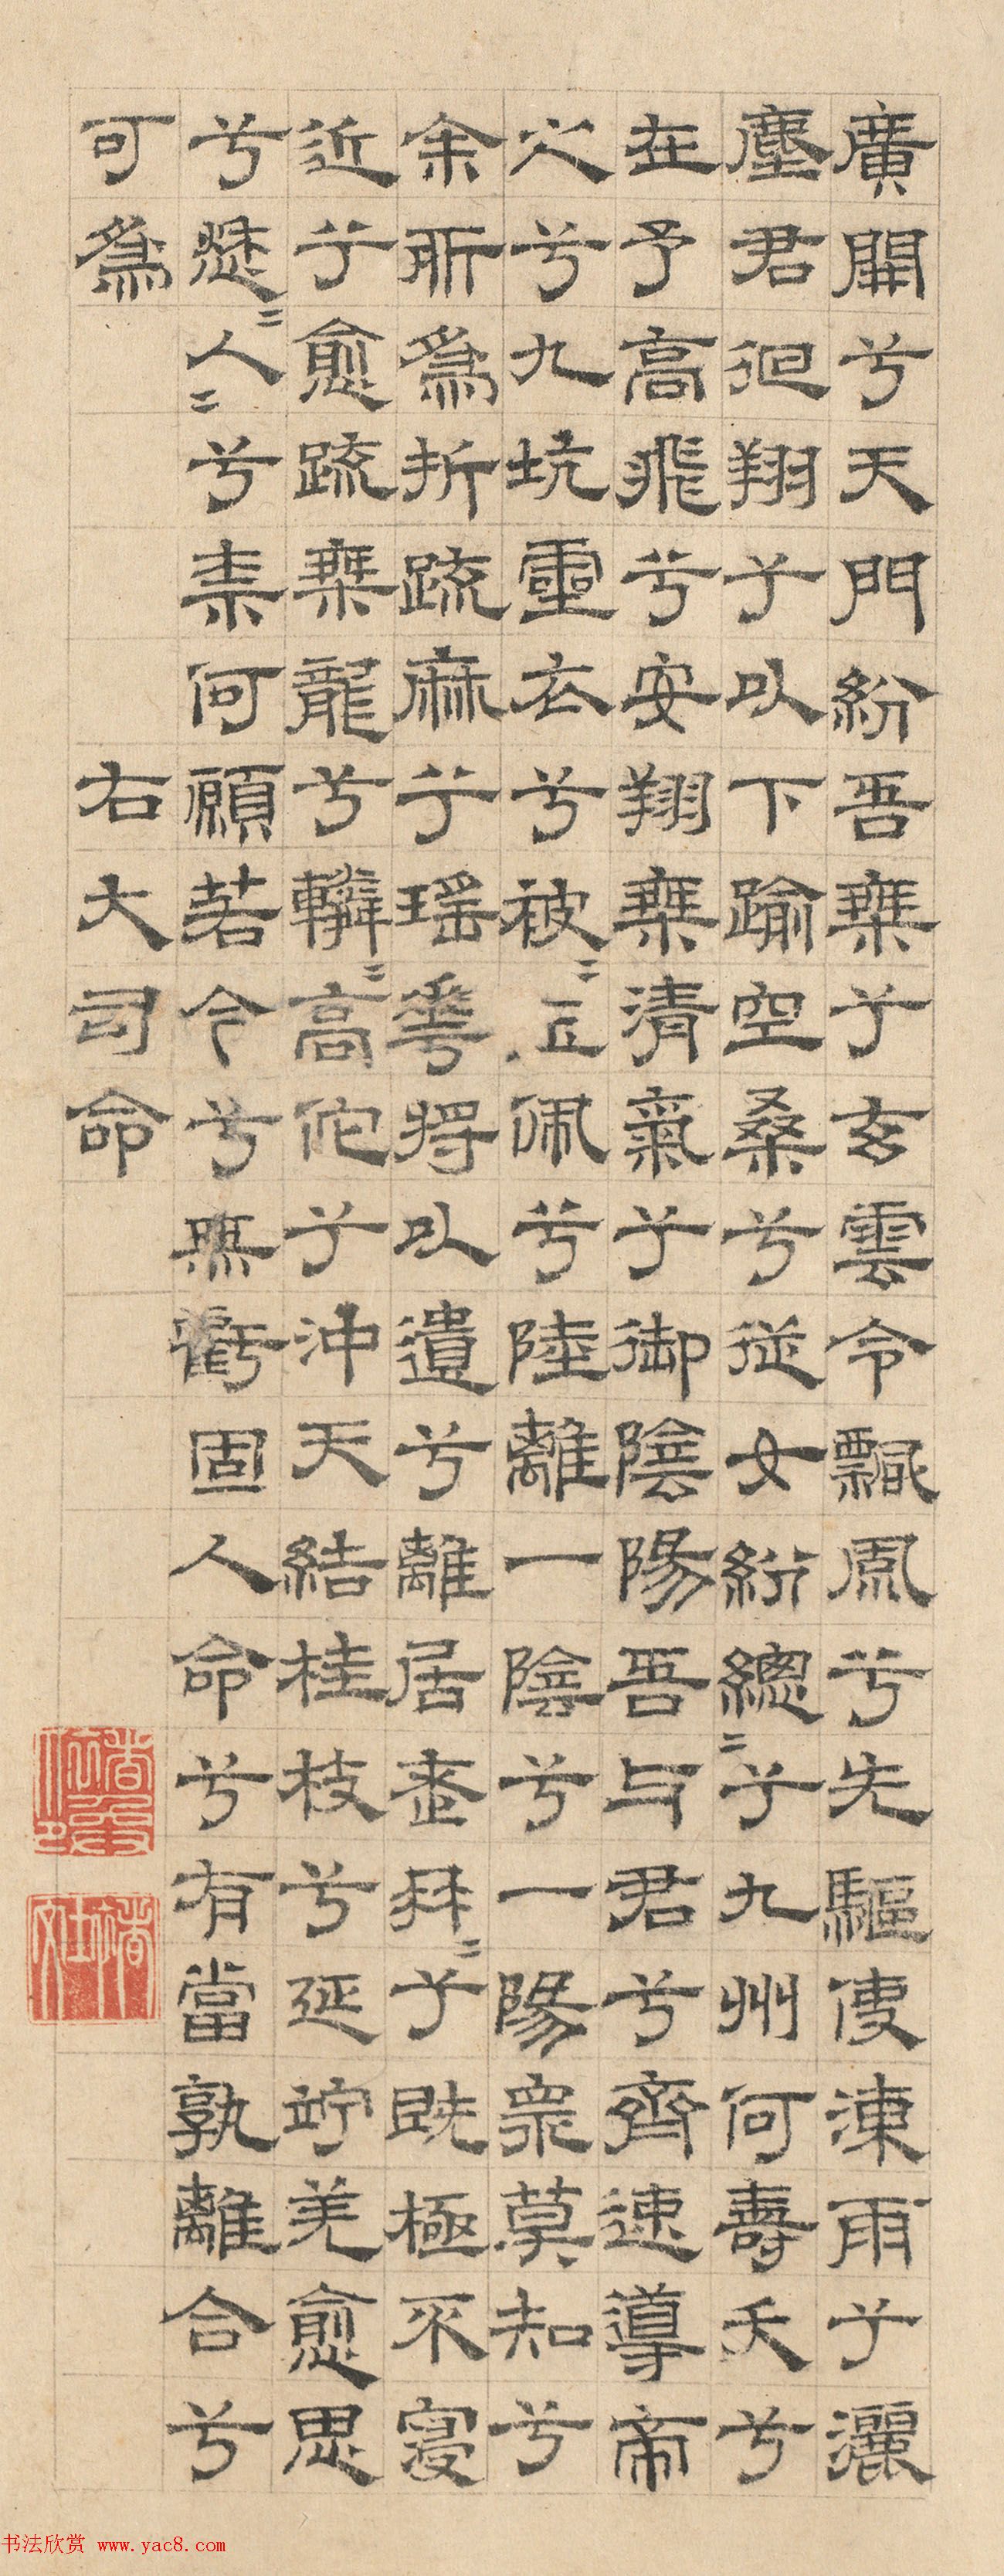 廣開兮天門紛吾椉兮玄雲令飄風兮先驅使涷雨兮灑
塵君徊翔兮以下踰空桑兮從女紛總〻兮九州何壽夭兮
在予高飛兮安翔椉清氣兮御陰陽吾与君兮齊速導帝
之兮九坑靈衣兮被〻玉佩兮陸離一陰兮一陽衆莫知兮
余所爲折疏麻兮瑤華將以遺兮離居老冉〻兮既極不寖
近兮愈疏椉龍兮轔〻高佗兮沖天結桂枝兮延竚羌愈思
兮愁〻人〻兮柰何願若今兮無虧固人命兮有當孰離合兮
可爲
右大司命
书法欣赏 www.yac8.com